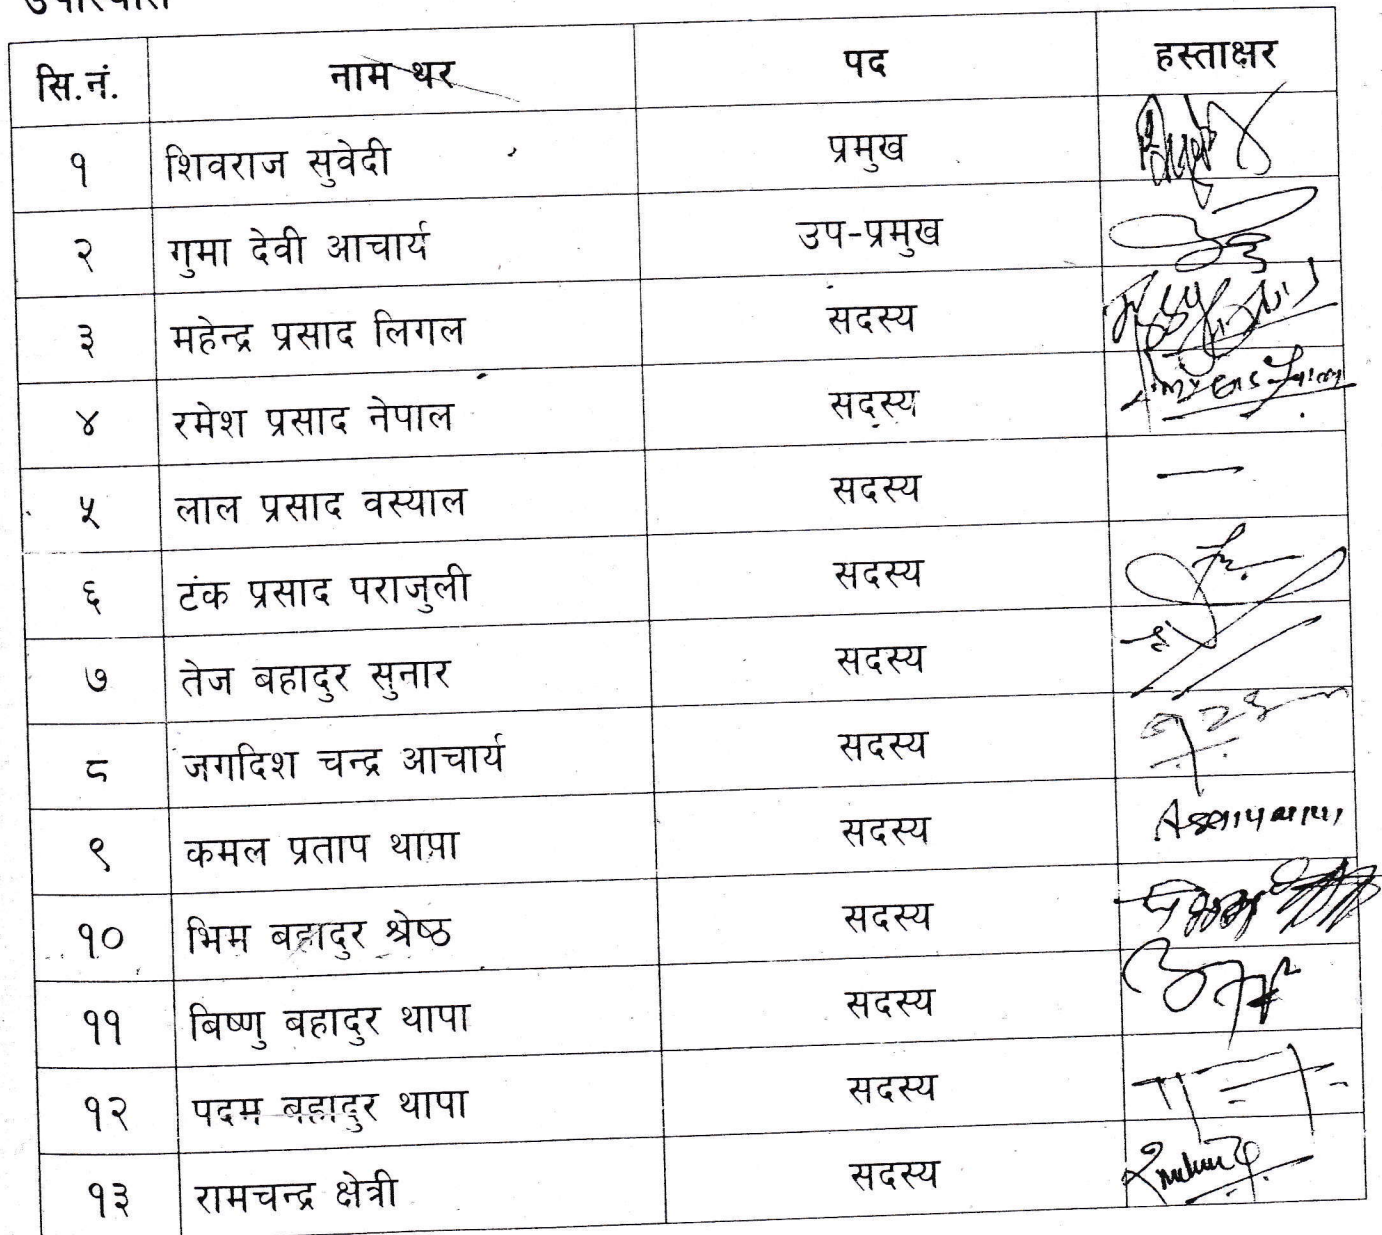 उपस्थिति
सि.नं. नाम थर पद हस्ताक्षर
१ शिवराज सुवेदी प्रमुख
२ गुमा देवी आचार्य उप-प्रमुख
३ महेन्द्र प्रसाद लिगल सदस्य
४ रमेश प्रसाद नेपाल सदस्य
५ लाल प्रसाद वस्याल सदस्य —
६ टंक प्रसाद पराजुली सदस्य
७ तेज बहादुर सुनार सदस्य
८ जगदिश चन्द्र आचार्य सदस्य
९ कमल प्रताप थापा सदस्य
१० भिम बहादुर श्रेष्ठ सदस्य
११ बिष्णु बहादुर थापा सदस्य
१२ पदम बहादुर थापा सदस्य
१३ रामचन्द्र क्षेत्री सदस्य